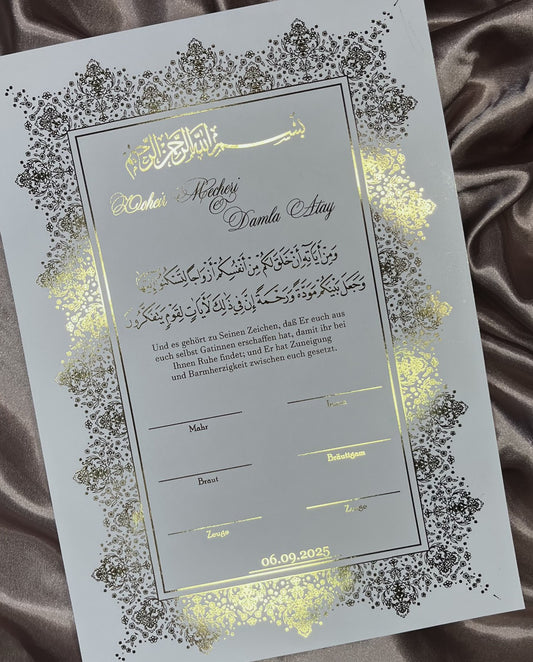 بسم الله الرحمن الرحيم
Mecheri
&
Damla Atay
وَمِنْ آيَاتِهِ أَنْ خَلَقَ لَكُم مِّنْ أَنفُسِكُمْ أَزْوَاجًا لِّتَسْكُنُوا إِلَيْهَا
وَجَعَلَ بَيْنَكُم مَّوَدَّةً وَرَحْمَةً إِنَّ فِي ذَٰلِكَ لَآيَاتٍ لِّقَوْمٍ يَتَفَكَّرُونَ
Und es gehört zu Seinen Zeichen, daß Er euch aus
euch selbst Gatinnen erschaffen hat, damit ihr bei
Ihnen Ruhe findet; und Er hat Zuneigung
und Barmherzigkeit zwischen euch gesetzt.
Mahr
Braut
Bräutigam
Zeuge
Zeuge
06.09.2025